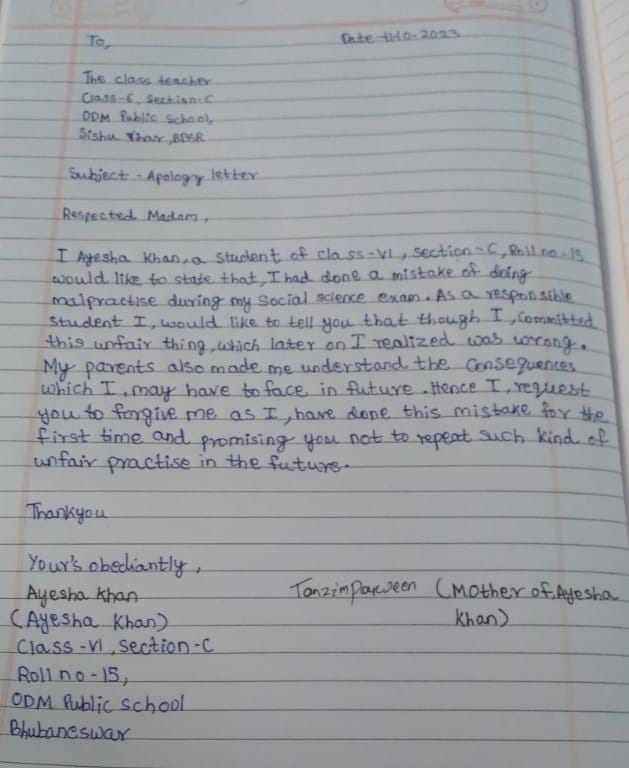 To,
Date-11-10-2023
The class teacher
Class-6, Section-C
ODM Public School,
Sishu Vihar, BBSR
Subject - Apology letter
Respected Madam,
I Ayesha Khan, a student of class-VI, section-C, Roll no-15,
would like to state that, I had done a mistake of doing
malpractise during my Social science exam. As a responsible
student I, would like to tell you that though I, committed
this unfair thing, which later on I realized was wrong.
My parents also made me understand the consequences
which I, may have to face in future. Hence I, request
you to forgive me as I, have done this mistake for the
first time and promising you not to repeat such kind of
unfair practise in the future.
Thankyou
Your's obediantly,
Ayesha Khan Tanzim Parween (Mother of, Ayesha
(Ayesha Khan) Khan)
Class-VI, Section-C
Roll no-15,
ODM Public School
Bhubaneswar